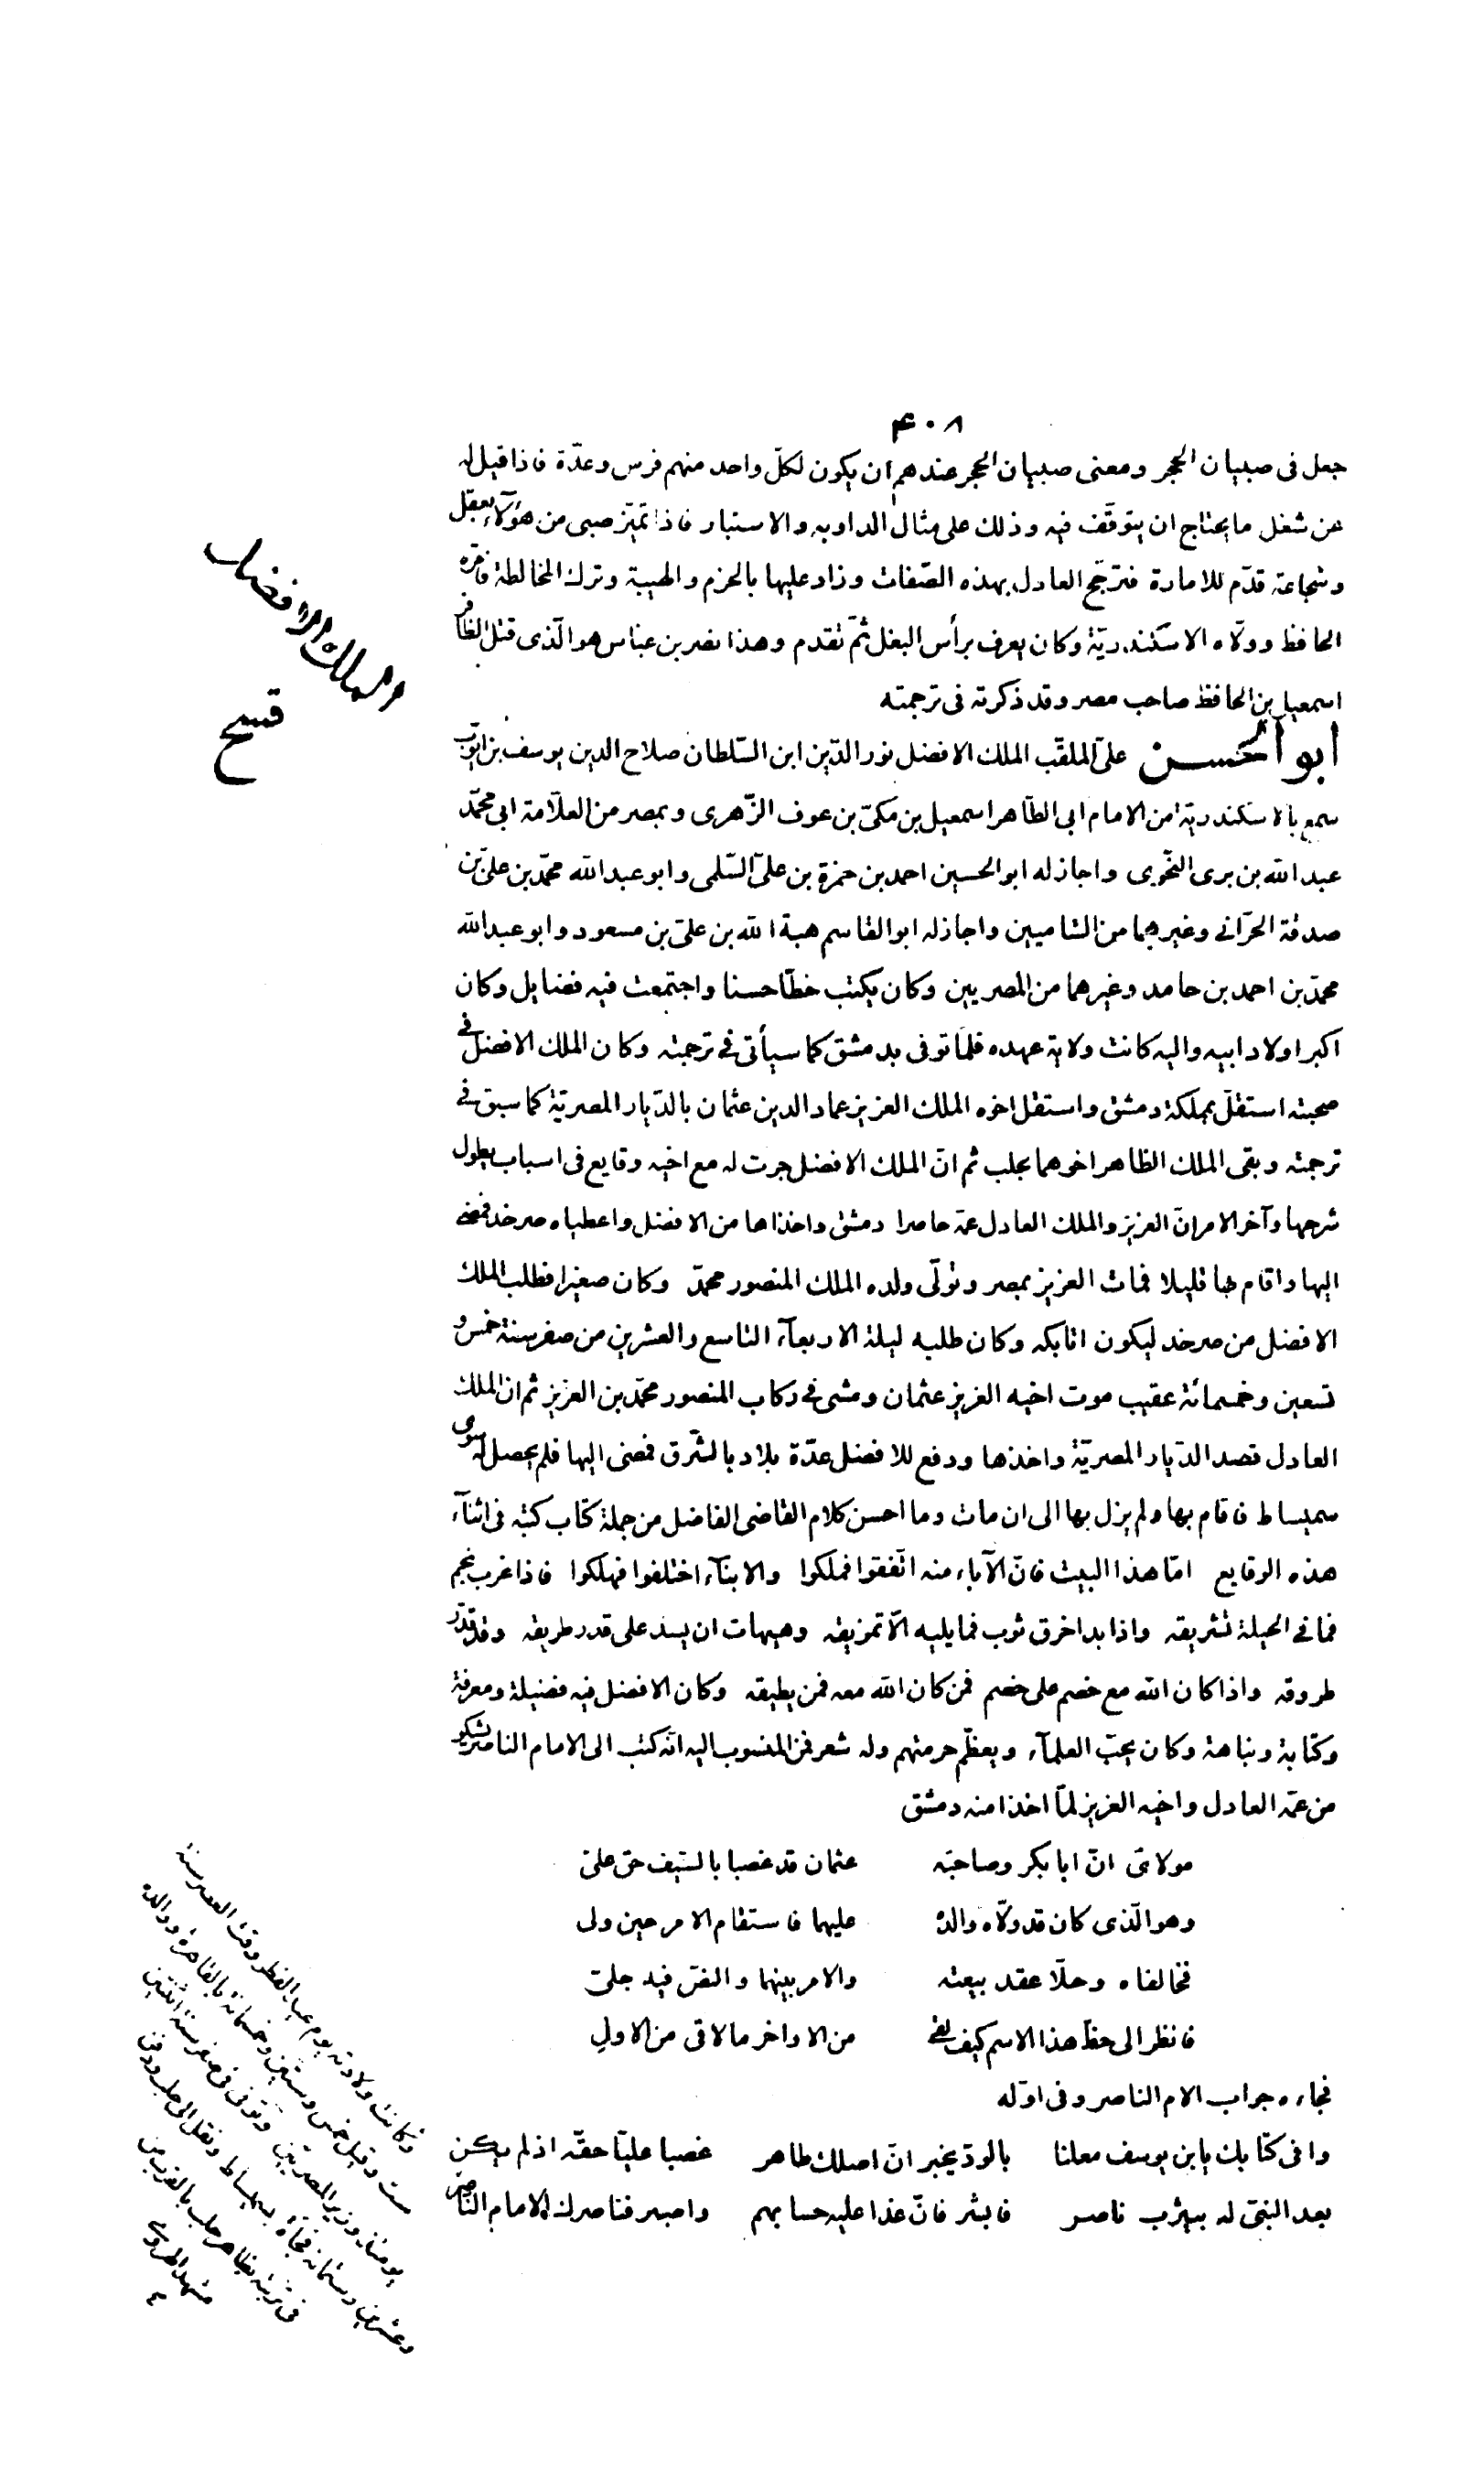 ٤٠٨
جعل فى صبيان الحجر ومعنى صبيان الحجر عندهم ان يكون لكلّ واحد منهم فرس وعدّة فاذا قيل له
عن شغل ما يحتاج ان يتوقّف فيه وذلك على مثال الداويه والاستبار فاذا تميّز صبى من هؤلآء بعقل
وشجاعة قدّم للامارة فترجّح العادل بهذه الصّفات وزاد عليها بالحزم والهيبة وترك المخالطة فامّره
الحافظ وولّاه الاسكندريّة وكان يعرف برأس البغل ثمّ تقدم وهذا نصر بن عبّاس هو الّذى قتل الظافر
اسمعيل بن الحافظ صاحب مصر وقد ذكرته فى ترجمته
ابو الحسن علىّ الملقّب الملك الافضل نور الدّين ابن السّلطان صلاح الدين يوسف بن ايّوب
سمع بالاسكندريّة من الامام ابى الطّاهر اسمعيل بن مكىّ بن عوف الزّهرى وبمصر من العلّامة ابى محمّد
عبد الله بن برى النّحوى واجاز له ابو الحسين احمد بن حمزة بن علىّ السّلمى وابو عبد الله محمّد بن علىّ بن
صدقة الحرّانى وغيرهما من الشاميين واجاز له ابو القاسم هبة الله بن علىّ بن مسعود وابو عبد الله
محمّد بن احمد بن حامد وغيرهما من المصريين وكان يكتب خطّا حسنا واجتمعت فيه فضايل وكان
اكبر اولاد ابيه واليه كانت ولاية عهده فلمّا توفى بدمشق كما سيأتى فى ترجمته وكان الملك الافضل فى
صحبته استقلّ بمملكة دمشق واستقل اخوه الملك العزيز عماد الدين عثمان بالدّيار المصريّة كما سبق فى
ترجمته وبقى الملك الظاهر اخوهما بحلب ثم انّ الملك الافضل جرت له مع اخيه وقايع فى اسباب يطول
شرحها وآخر الامر انّ العزيز والملك العادل عمّه حاصرا دمشق واخذاها من الافضل واعطياه صرخد فمضى
اليها واقام بها قليلا فمات العزيز بمصر وتولّى ولده الملك المنصور محمّد وكان صغيرا فطلب الملك
الافضل من صرخد ليكون اتابكه وكان طلبه ليلة الاربعآء التاسع والعشرين من صفر سنة خمس و
تسعين وخمسمائة عقيب موت اخيه العزيز عثمان ومشى فى ركاب المنصور محمّد بن العزيز ثم ان الملك
العادل قصد الدّيار المصريّة واخذها ودفع للافضل عدّة بلاد بالشّرق فمضى اليها فلم يحصل له سوى
سميساط فاقام بها ولم يزل بها الى ان مات وما احسن كلام القاضى الفاضل من جملة كتاب كتبه فى اثنآء
هذه الوقايع امّا هذا البيت فانّ الآباء منه اتّفقوا فملكوا والابنآء اختلفوا فهلكوا فاذا غرب نجم
فما فى الحيلة تشريقه واذا بدا خرق ثوب فما يليه الّا تمزيقه وهيهات ان يسد على قدر طريقه وقد قدّر
طروقه واذا كان الله مع خصم على خصم فمن كان الله معه فمن يطيقه وكان الافضل فيه فضيلة ومعرفة
وكتابة ونباهة وكان يحبّ العلمآء ويعظّم حرمتهم وله شعر فمن المنسوب اليه انّه كتب الى الامام الناصر يشكو
من عمّه العادل واخيه العزيز لمّا اخذا منه دمشق
مولاىَ انّ ابا بكر وصاحبَه عثمان قد غصبا بالسّيف حق علىّ
وهو الّذى كان قد ولّاه والدُه عليهما فاستقام الامر حين ولى
فخالفاه وحلّا عقد بيعته والامر بينهما والنصّ فيه جلىّ
فانظر الى حظّ هذا الاسم كيف لقى من الاواخر ما لاقى من الاولِ
فجاءه جواب الامام الناصر وفى اوّله
وافى كتابك يا بن يوسف معلنا بالودّ يخبر انّ اصلك طاهر غصبا عليّا حقّه اذ لم يكن
بعد النبىّ له بيثرب ناصر فابشر فانّ غدا عليه حسابهم واصبر فناصرك الامام النّاصر
الملك الافضل
قسح
وكانت ولادته يوم عيد الفطر وقت العصر سنة
ست وقيل خمس وستين وخمسمائة بالقاهرة ووالده
يومئذ وزير المصريّين وتوفى فى صفر سنة اثنتين
وعشرين وستمائة فجأة بسميساط ونقل الى حلب ودفن
فى تربته بظاهر حلب بالقرب من
مشهد الهروى